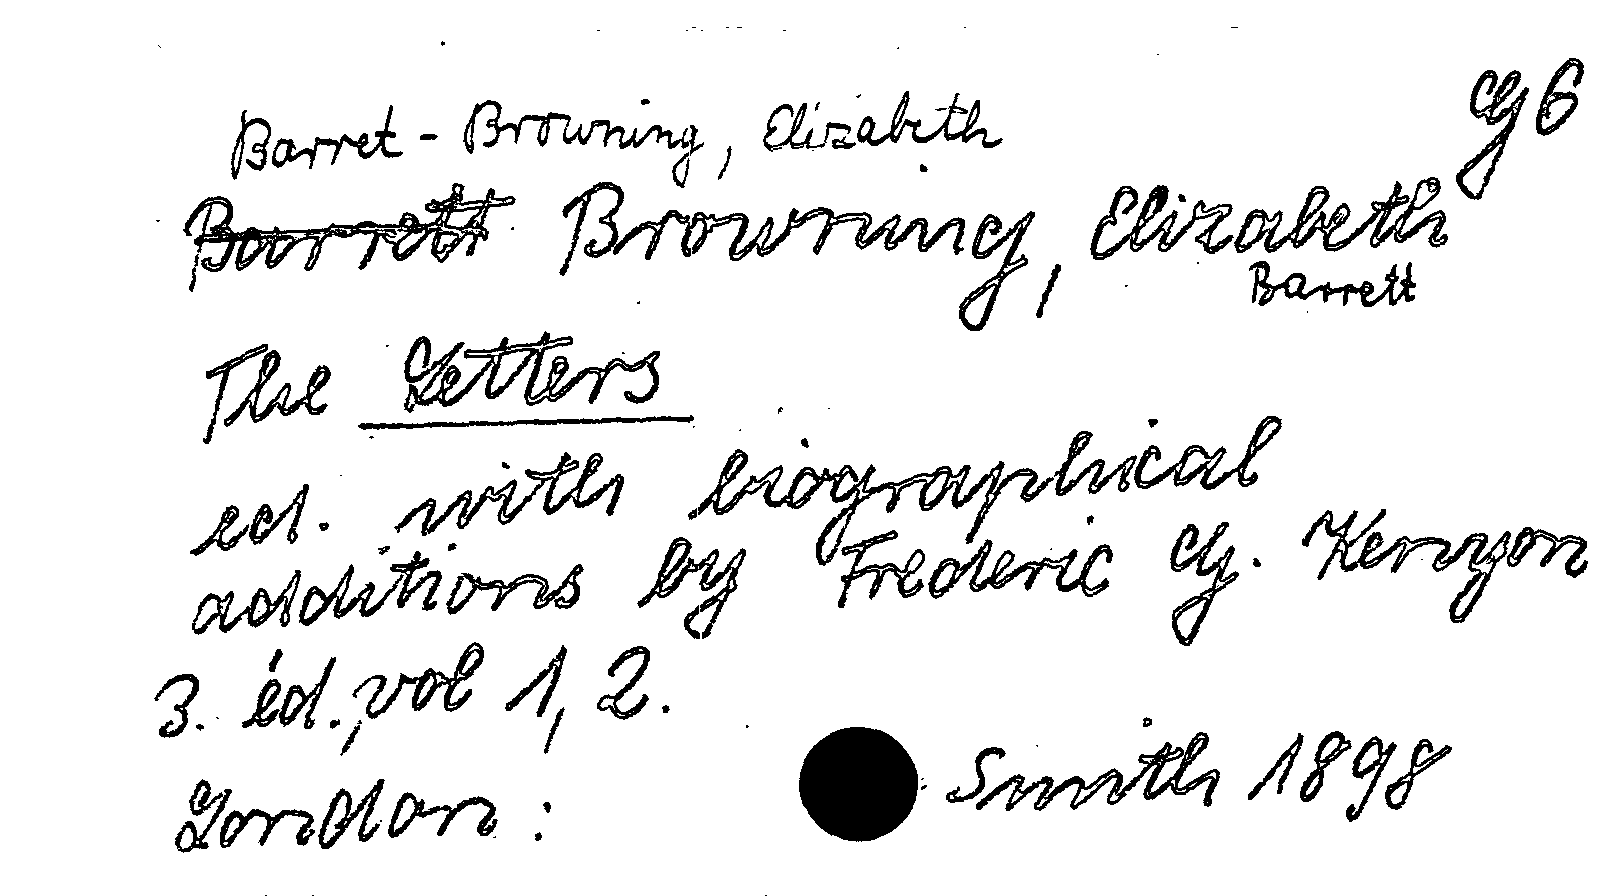 G 6
Barret - Browning, Elizabeth
Barrett Browning, Elizabeth
Barrett
The Letters
ed. with biographical
additions by Frederic G. Kenyon
3. éd., vol 1, 2.
London : Smith 1898